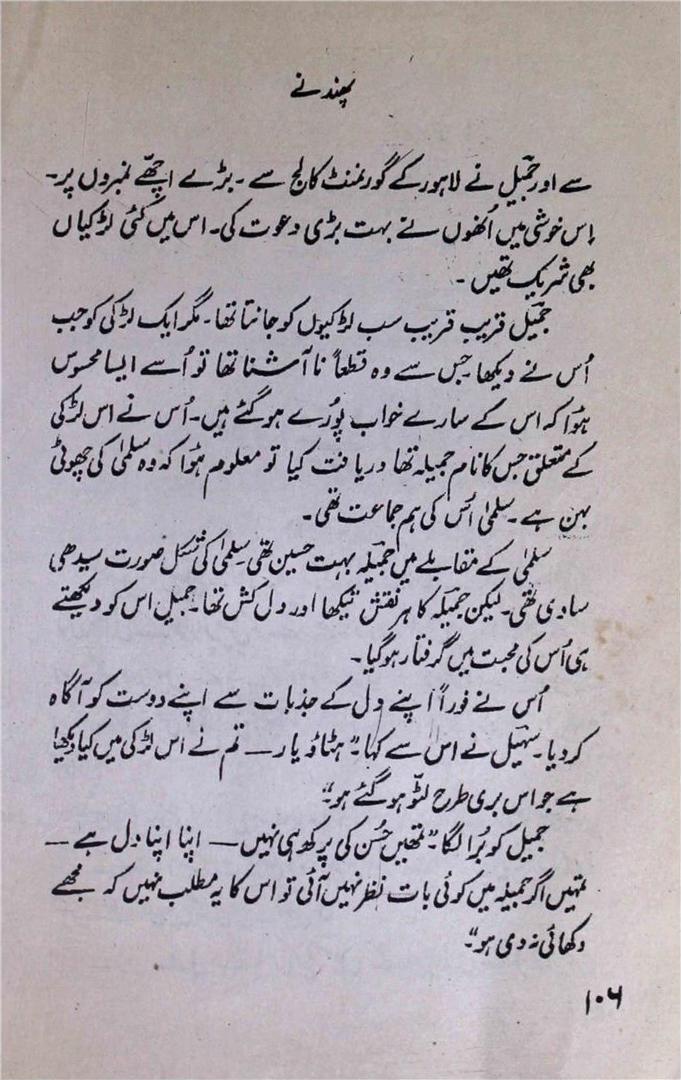 پھندنے
سے اور جمیل نے لاہور کے گورنمنٹ کالج سے ۔ بڑے اچھّے نمبروں پر۔
اِس خوشی میں اُنھوں نے بہت بڑی دعوت کی۔ اس میں کئی لڑکیاں
بھی شریک تھیں ۔
جمیل قریب قریب سب لڑکیوں کو جانتا تھا۔ مگر ایک لڑکی کو جب
اُس نے دیکھا جس سے وہ قطعاً نا آشنا تھا تو اُسے ایسا محسوس
ہوٗا کہ اس کے سارے خواب پُورے ہو گئے ہیں۔ اُس نے اس لڑکی
کے متعلق جس کا نام جمیلہ تھا دریافت کیا تو معلوم ہوٗا کہ وہ سلمیٰ کی چھوٹی
بہن ہے ۔ سلمیٰ اُس کی ہم جماعت تھی۔
سلمیٰ کے مقابلے میں جمیلہ بہت حسین تھی سلمیٰ کی شکل صورت سیدھی
سادی تھی۔ لیکن جمیلہ کا ہر نقش تیکھا اور دل کش تھا۔ جمیل اس کو دیکھتے
ہی اُس کی محبت میں گرفتار ہو گیا۔
اُس نے فوراً اپنے دل کے جذبات سے اپنے دوست کو آگاہ
کر دیا۔ سہیل نے اس سے کہا۔ ”ہٹاؤ یار — تم نے اس لڑکی میں کیا دیکھا
ہے جو اس بری طرح لٹّو ہو گئے ہو“۔
جمیل کو بُرا لگا۔ ”تمھیں حُسن کی پرکھ ہی نہیں — اپنا اپنا دل ہے —
تمہیں اگر جمیلہ میں کوئی بات نظر نہیں آئی تو اس کا یہ مطلب نہیں کہ مجھے
دکھائی نہ دی ہو“۔
۱۰۶